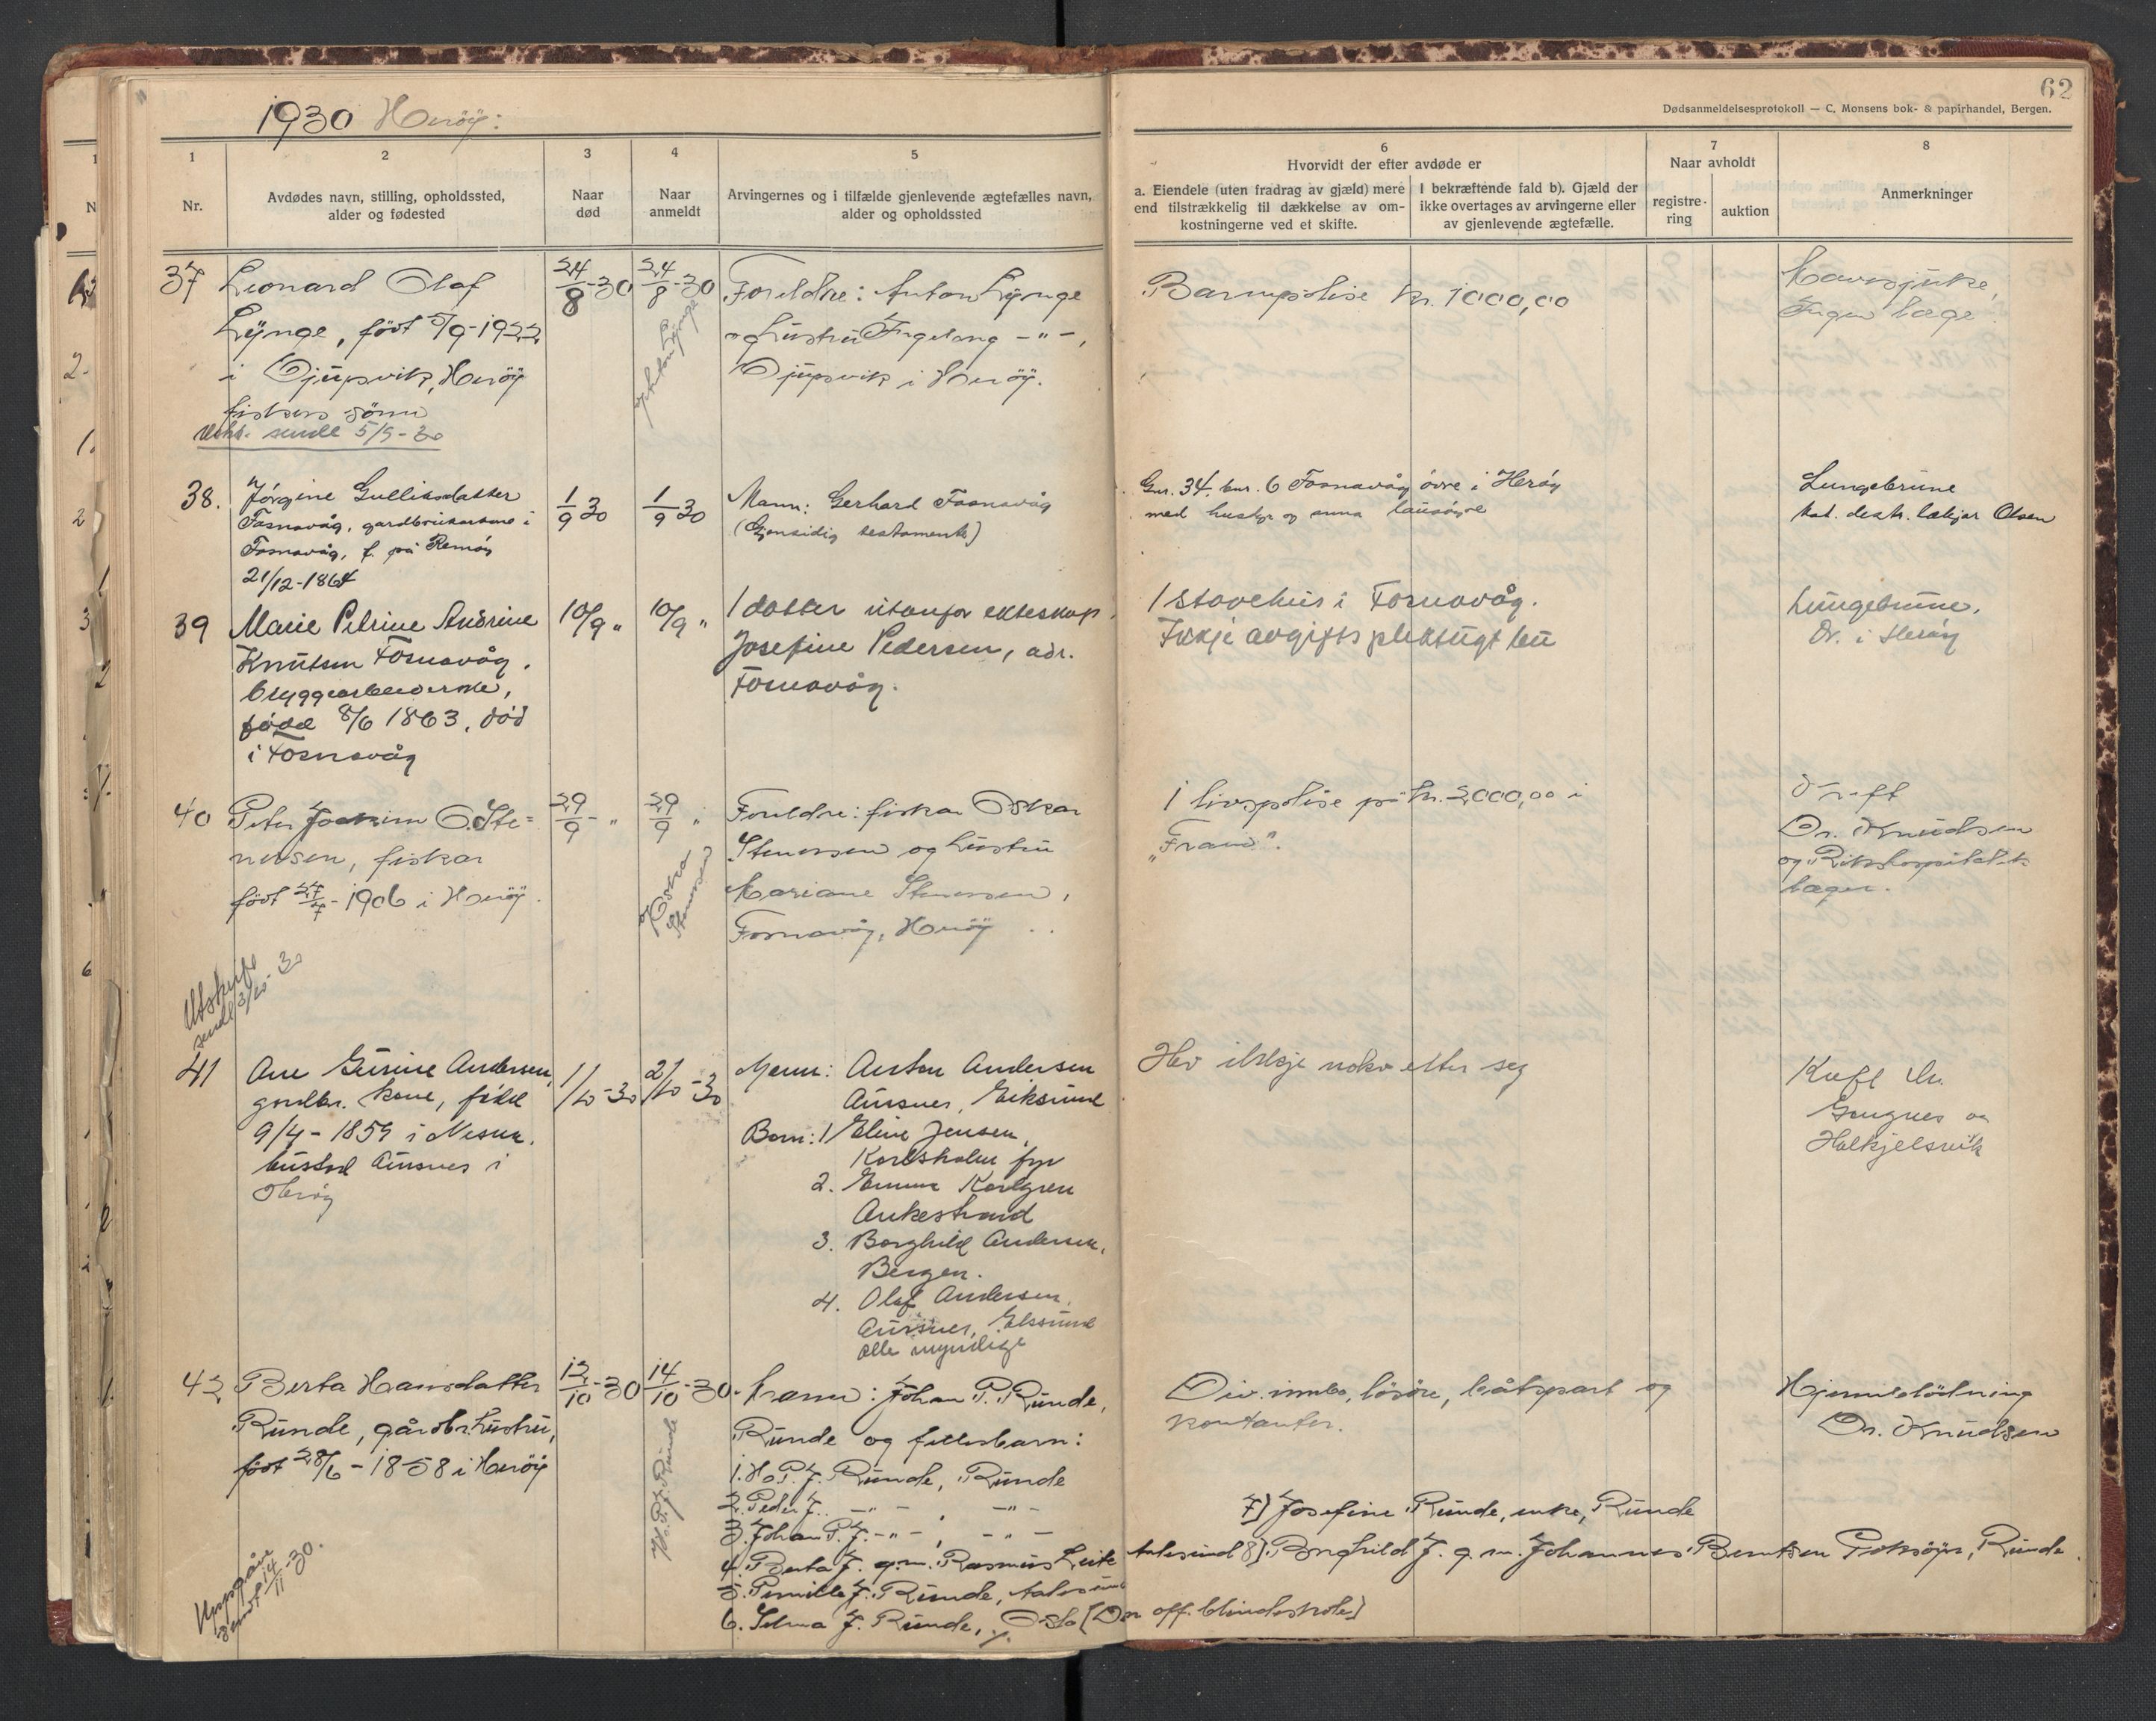 1930 Herøy:
62
Dødsanmeldelsesprotokoll — C. Monsens bok- & papirhandel, Bergen.
1
Nr.
2
Avdødes navn, stilling, opholdssted,
alder og fødested
3
Naar
død
4
Naar
anmeldt
5
Arvingernes og i tilfælde gjenlevende ægtefælles navn,
alder og opholdssted
6
Hvorvidt der efter avdøde er
a. Eiendele (uten fradrag av gjæld) mere
end tilstrækkelig til dækkelse av om-
kostningerne ved et skifte.
I bekræftende fald b). Gjæld der
ikke overtages av arvingerne eller
av gjenlevende ægtefælle.
7
Naar avholdt
registre-
ring
auktion
8
Anmerkninger
37
Leonard Olaf
Lynge, født 5/9-1922
i Djupvik, Herøy
fiskers sønn
sendt 5/9-30
24/8-30
24/8-30
Anton Lynge
Foreldre: Anton Lynge
og hustru Ingeborg -"-,
Djupvik i Herøy.
Barnepolise kr. 1000,00
Ingen læge
38.
Jørgine Gulliksdatter
Fosnavåg, gardbrukarkone i
Fosnavåg, f. på Remøy
21/12-1864
1/9 30
1/9 30
Mann: Gerhard Fosnavåg
(Gjensidig testamente)
Gnr. 34, bnr. 6 Fosnavåg øvre i Herøy
med hustyr og anna lausøyre
Lungebrune
Kst. distr. lækjar Olsen
39
Marie Petrine Andrine
Knutsen Fosnavåg,
bryggearbeiderske,
fødd 8/6 1863, død
i Fosnavåg
10/9 "
10/9 "
1 dotter utanfor ekteskap,
Josefine Pedersen, adr.
Fosnavåg.
1 stovehus i Fosnavåg.
Ikkje avgiftspliktugt bu
Lungebrune.
Dr. i Herøy
40
Peter Joakim O. Ste=
nersen, fiskar
født 27/7-1906 i Herøy.
Utskrift
sendt 3/10-30
29/9- "
29/9 "
Oskar
Stenersen
Foreldre: fiskar Oskar
Stenersen og hustru
Mariane Stenersen,
Fosnavåg, Herøy
1 livspolise på kr. 2000,00 i
"Fram".
Dr. Knudsen
og Rikshospitalets
læger.
41
Ane Gurine Andersen,
gardbr. kone, fødd
9/4-1859 i Nesna.
bustad Aursnes i
Herøy
1/10-30
2/10-30
Mann: Anton Andersen
Aursnes, Eiksund
Born: 1 Eline Jensen,
Karlsholm fyr
2. Emma Karlgren
Ankestrand
3. Borghild Andersen,
Bergen.
4. Olaf Andersen,
Aursnes, Eiksund
alle myndige
Hev ikkje noko etter seg
Kreft Dr.
Gangnes og
Hatkjelsvik
42
Berta Hansdatter
Runde, gårdbr. hustru,
født 28/6-1858 i Herøy
Uppgåve
sendt 14/11-30.
12/10-30
14/10-30.
H. P. J. Runde
Mann: Johan P. Runde,
Runde og fellesbarn:
1. H. P. J. Runde, Runde
2. Peder J. -"- -"-
3. Johan P. J. -"-, -"-
4. Berta J. g.m. Rasmus Leite Aalesund
5. Pernille J. Runde, Aalesund
6. Selma J. Runde, Oslo [Den off. blindeskole]
7) Josefine Runde, enke, Runde
8) Borghild J. g.m. Johannes Berntsen Goksøyr, Runde.
Div. innbo, løsøre, båtspart og
kontanter.
Hjerneblødning
Dr. Knudsen